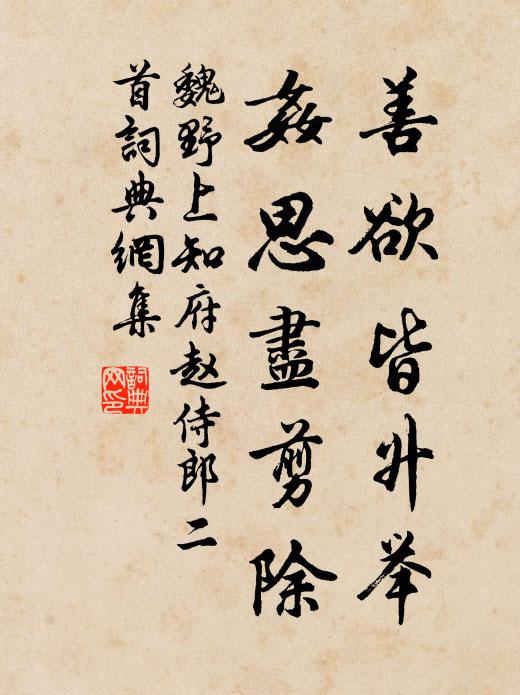 善欲皆升举
姦思盡剪除
魏野上知府赵侍郎二
首詞典網集
詞典
网印